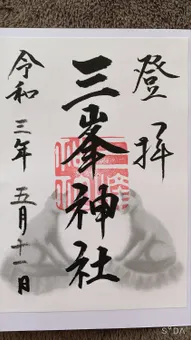 登拝
三峯神社
令和三年五月十一日